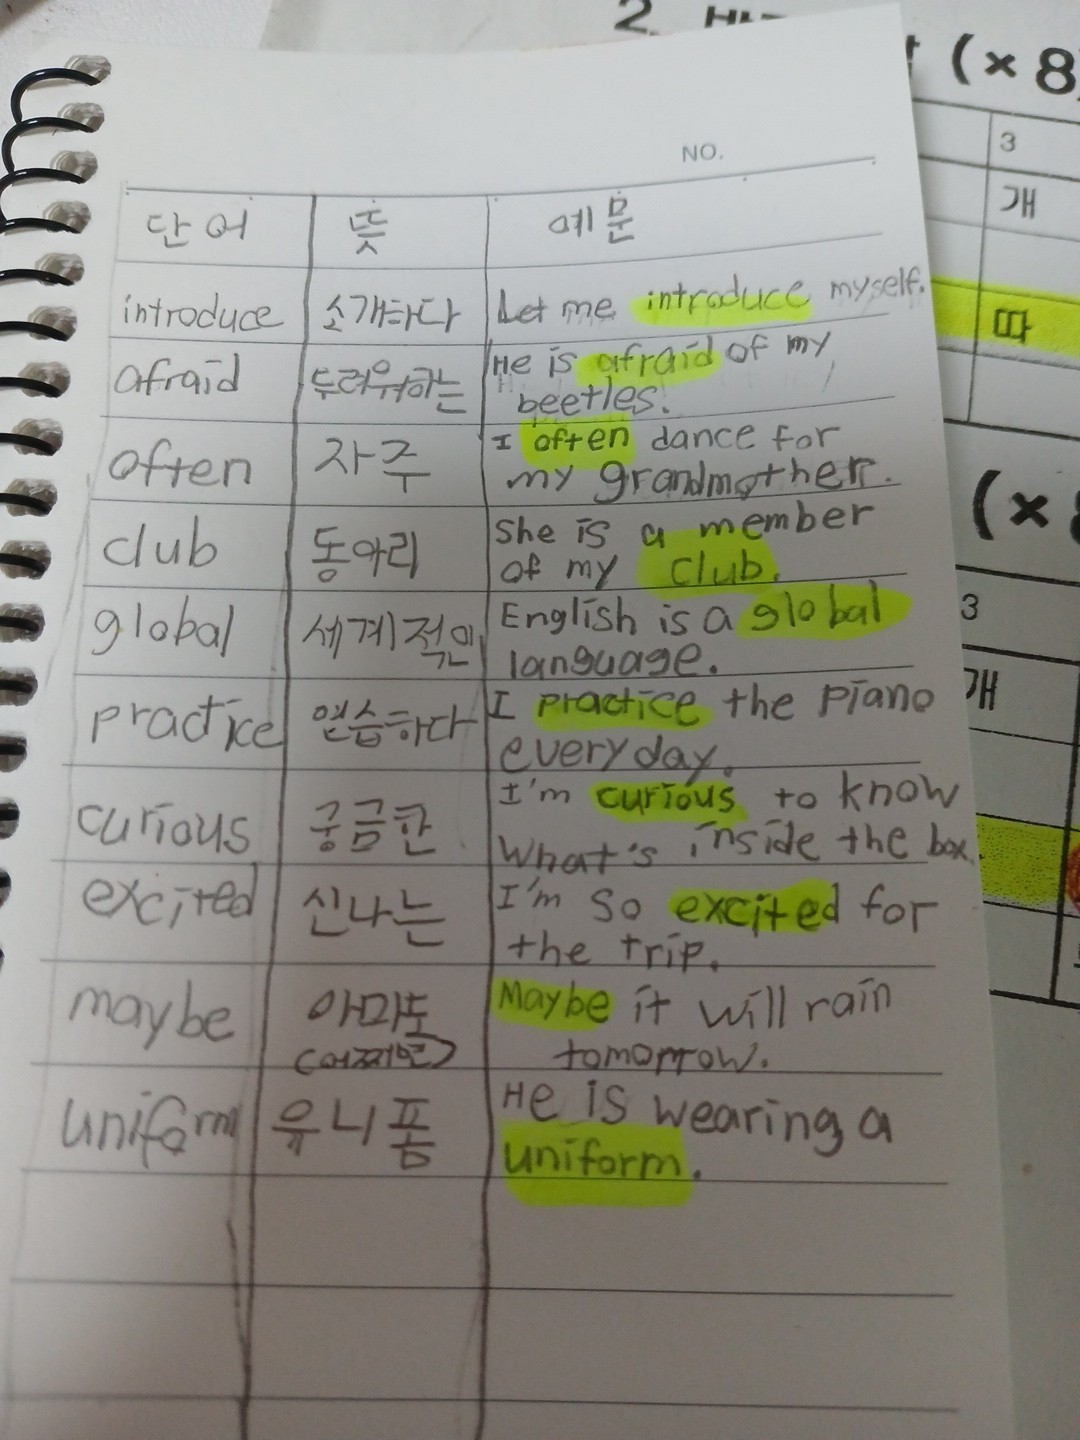 2.
(×8)
3
개
따
(×8
3
개
NO.
단어 뜻 예문
introduce 소개하다 Let me introduce myself.
afraid 두려워하는 He is afraid of my
beetles.
often 자주 I often dance for
my grandmother.
club 동아리 She is a member
of my club.
global 세계적인 English is a global
language.
practice 연습하다 I practice the piano
everyday.
curious 궁금한 I'm curious to know
What's inside the box.
excited 신나는 I'm so excited for
the trip.
maybe 아마도 Maybe it will rain
(어쩌면) tomorrow.
uniform 유니폼 He is wearing a
uniform.